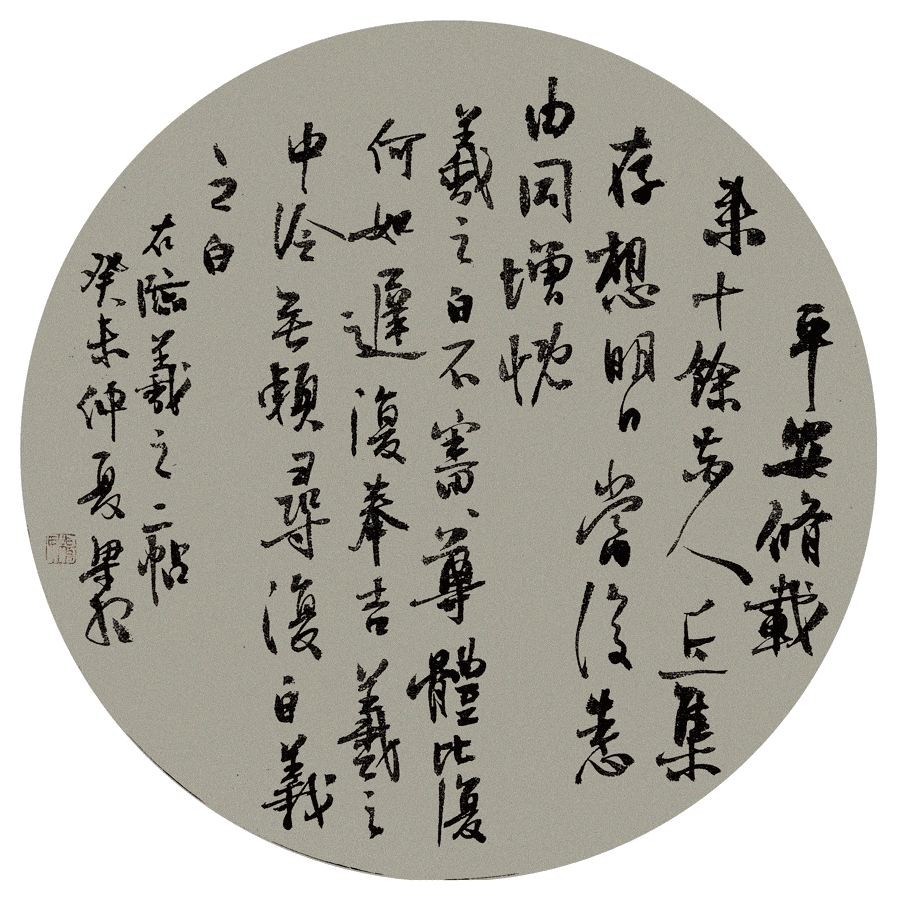 平安脩載
來十餘諸人近集
存想明日當復悉
由同增慨
羲之白不審尊體比復
何如遲復奉告羲之
中冷無賴尋復白羲
之白
右臨羲之二帖
癸未仲夏